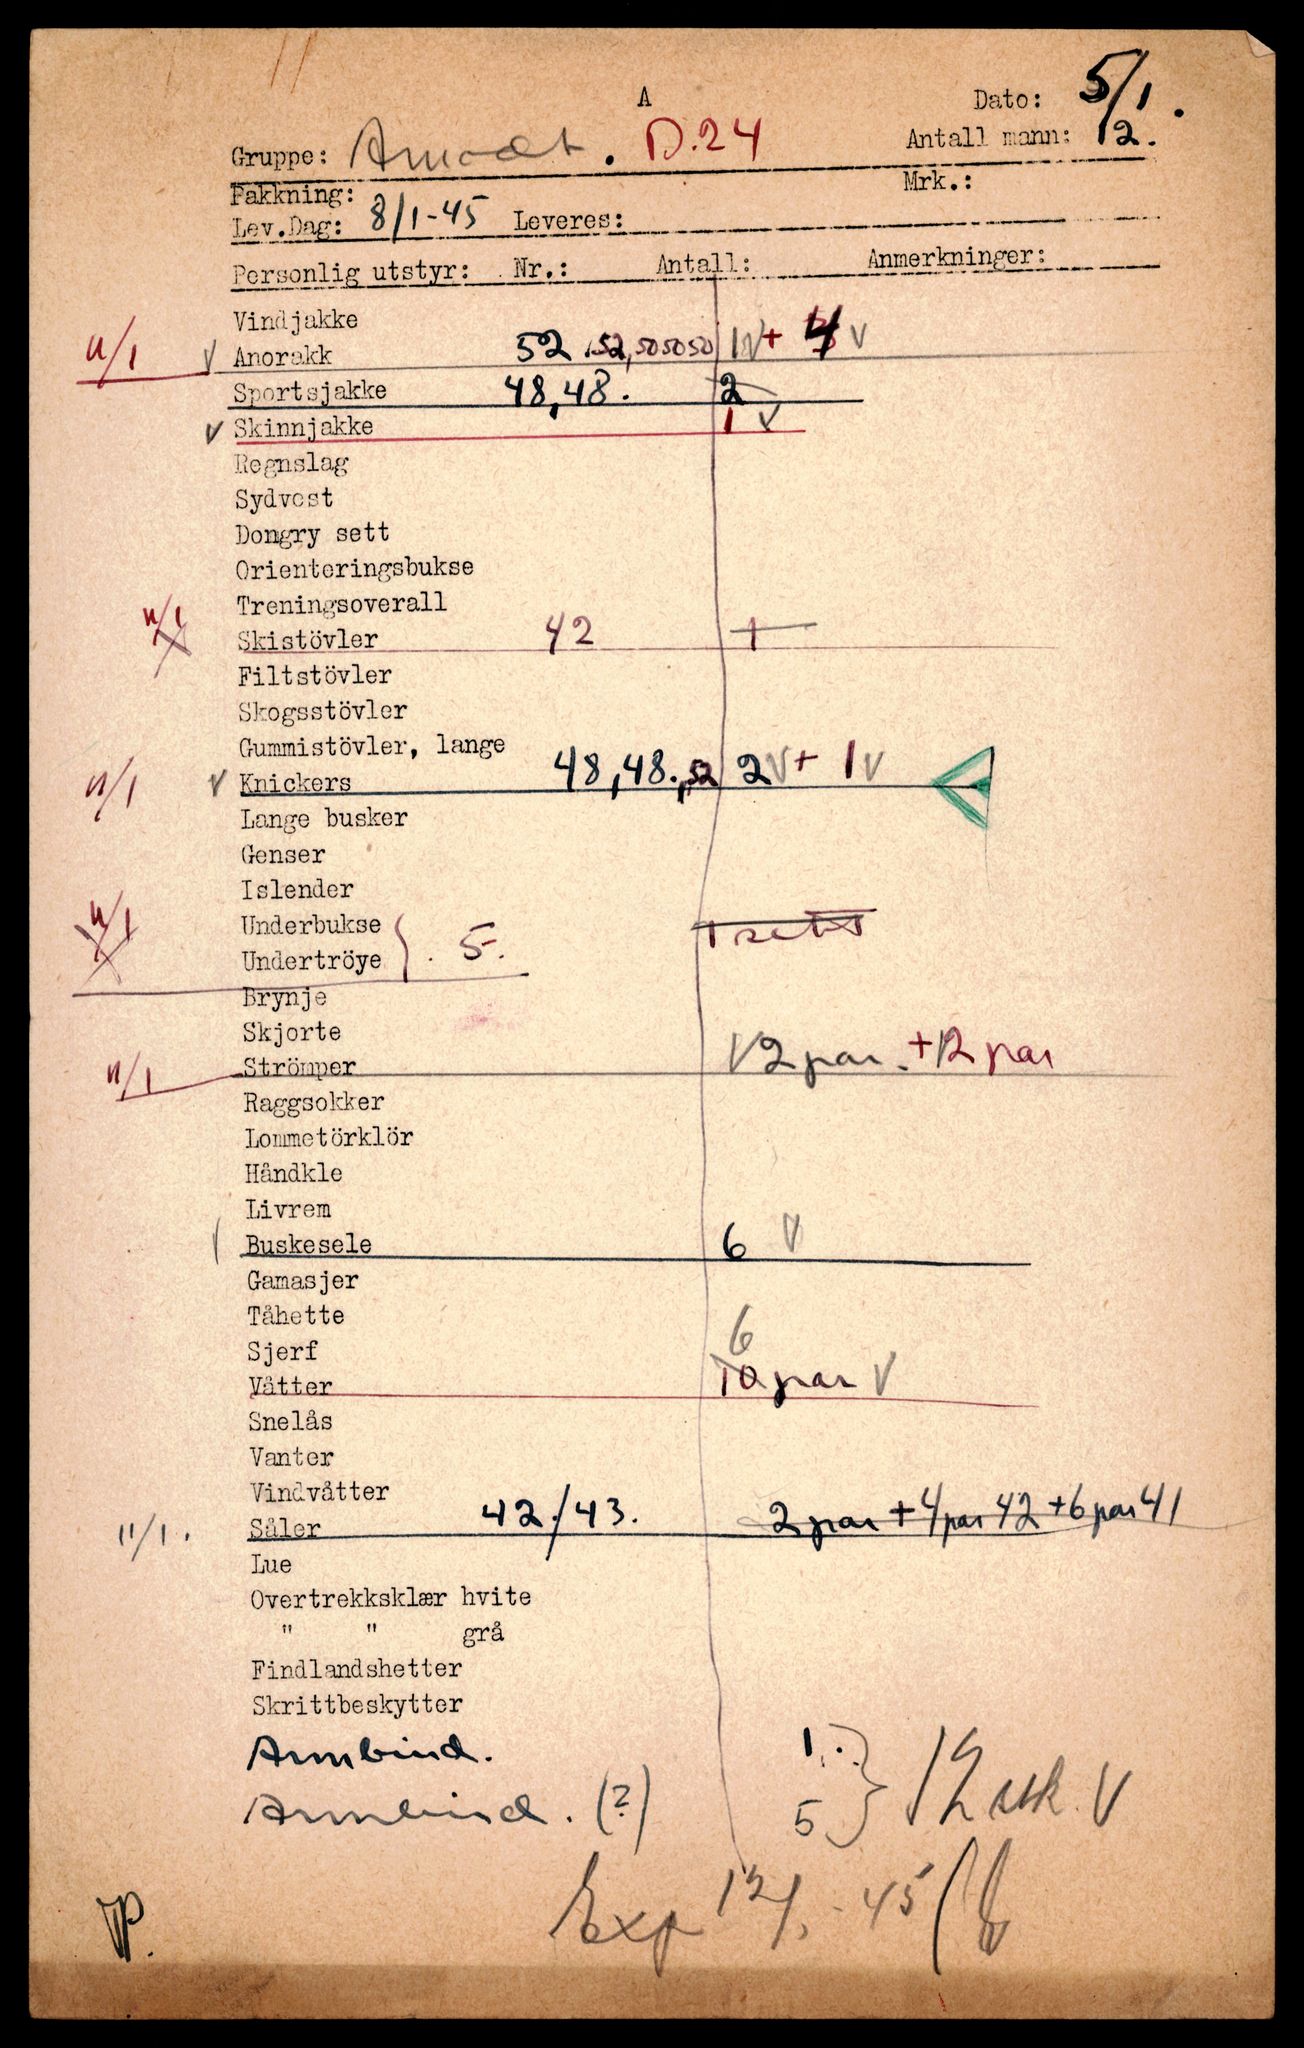 A
Dato: 5/1.
Gruppe: D.24 Antall mann: 12.
Pakkning: Mrk.:
Lev.Dag: 8/1-45 Leveres:
Personlig utstyr: Nr.: Antall: Anmerkninger:
Vindjakke
11/1 V Anorakk 52, 52, 50 50 50 1 V + 4 V
Sportsjakke 48,48. 2
V Skinnjakke 1 V
Regnslag
Sydvest
Dongry sett
Orienteringsbukse
Treningsoverall
11/1 Skistövler 42 1
Filtstövler
Skogsstövler
Gummistövler, lange
11/1 V Knickers 48,48., 52 2 V + 1 V
Lange busker
Genser
Islender
11/1 Underbukse 1 sett
Undertröye } . 5.
Brynje
Skjorte
11/1 Strömper V 2 par. + 12 par
Raggsokker
Lommetörklör
Håndkle
Livrem
V Buskesele 6 V
Gamasjer
Tåhette
Sjerf 6
Våtter 10 par V
Snelås
Vanter
Vindvåtter
11/1. Såler 42./43. 2 par + 4 par 42 + 6 par 41
Lue
Overtrekksklær hvite
" " grå
Findlandshetter
Skrittbeskytter
Armbind. 1.
Armbind. (?) 5 } 12 stk. V
Exp 12/1-45